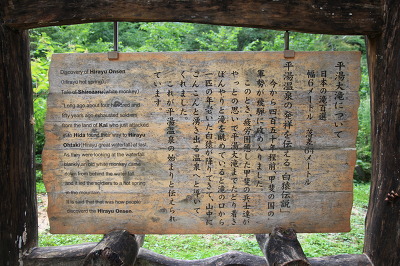 平湯大滝について
日本の滝百選
幅6メートル 落差64メートル
平湯温泉の発祥を伝える「白猿伝説」
今から四百五十年程前、甲斐の国の
軍勢が飛騨に攻め入りました。
このとき、疲労困憊した甲斐の兵士達が
やっとの思いで平湯大滝までたどり着き
ぼんやりと滝を眺めていると滝の口から
一匹の年老いた白猿が降りてきて、山中に
こんこんと湧き出る「温泉」へと導いて
くれました。
これが平湯温泉の始まりと伝えられ
ています。
Discovery of Hirayu Onsen
(Hirayu hot spring)
Tale of Shirosaru (white monkey)
Long ago about four hundred and
fifty years ago, exhausted soldiers
from the land of Kai who just attacked
into Hida found their way to Hirayu
Ohtaki (Hirayu great waterfall) to rest.
As they were looking at the waterfall
blankly, an old white monkey came
down from behind the waterfall,
and it led the soldiers to a hot spring
in the mountains.
It is said that that was how people
discovered the Hirayu Onsen.